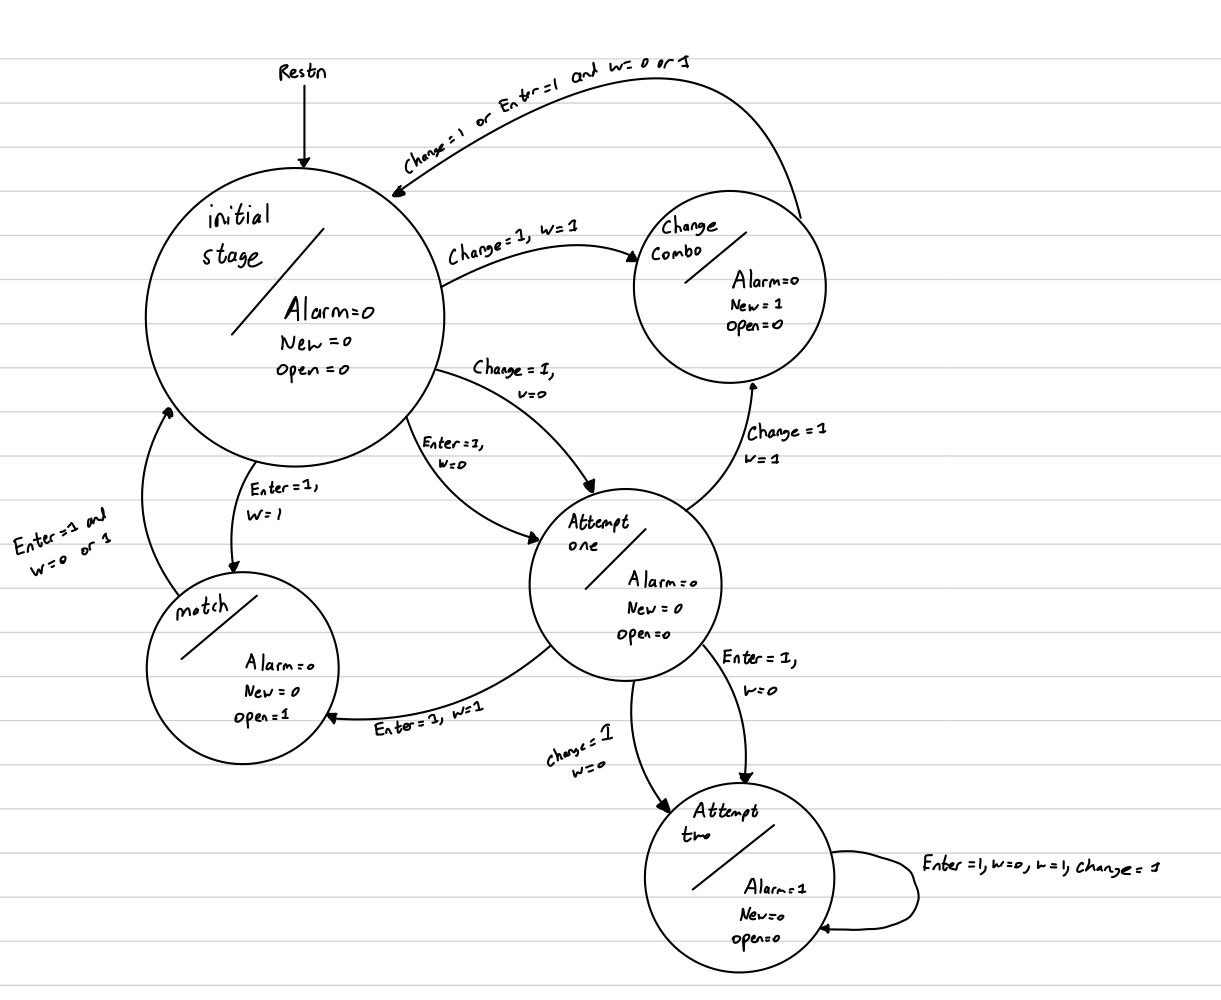 Restn
Change = 1 or Enter = 1 and w = 0 or 1
initial
stage
Alarm=0
New =0
Open =0
Change=1, w=1
Change
Combo
Alarm=0
New = 1
Open=0
Change = 1,
w=0
Enter=1,
w=0
Change = 1
w=1
Enter=1,
w=1
Enter=1 and
w=0 or 1
Attempt
one
Alarm=0
New = 0
Open=0
match
Alarm=0
New = 0
Open=1
Enter=1, w=1
Enter = 1,
w=0
Change = 1
w=0
Attempt
two
Alarm=1
New=0
Open=0
Enter =1, w=0, w=1, Change = 1